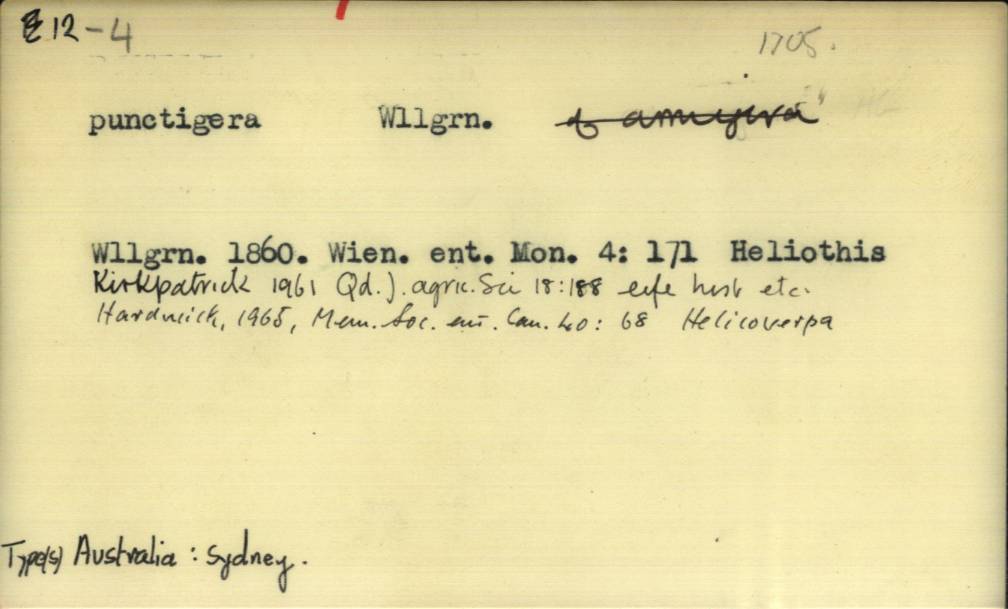 E 12-4
1705.
punctigera Wllgrn.
Wllgrn. 1860. Wien. ent. Mon. 4: 171 Heliothis
Kirkpatrick 1961 Qd. J. agric. Sci 18:188 life hist etc.
Hardwick, 1965, Mem. Soc. ent. Can. 40: 68 Helicoverpa
Type(s) Australia: Sydney.